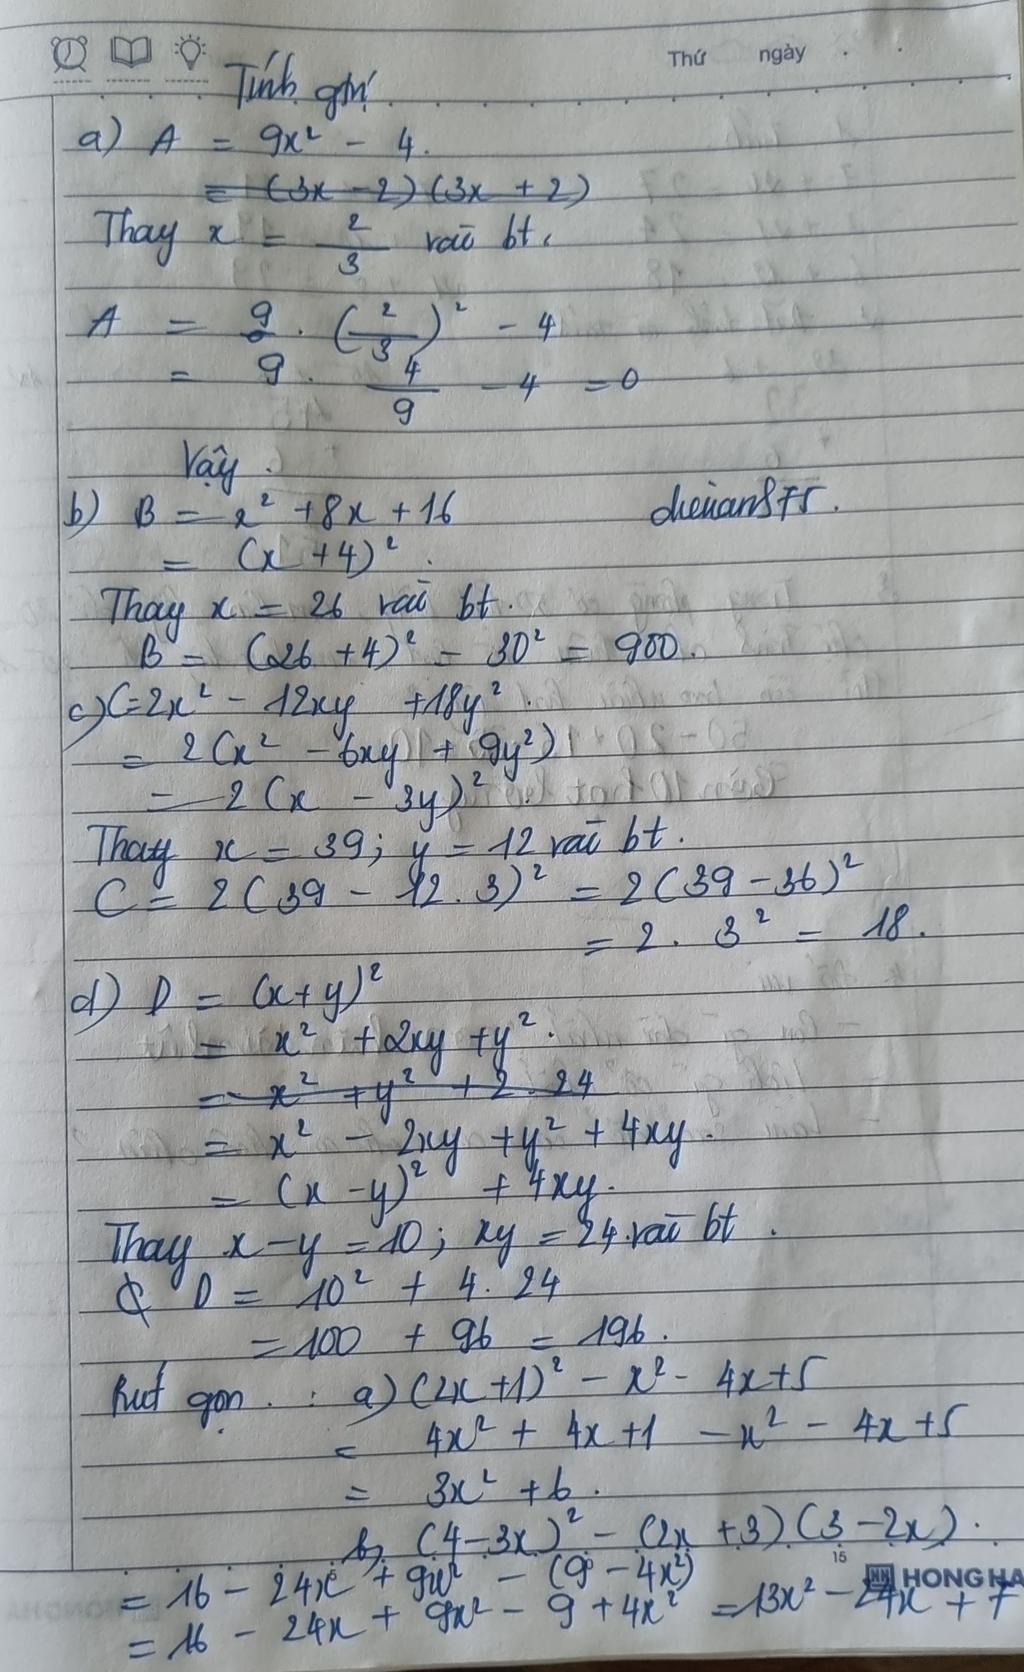 Thứ ngày
Tính gtrị
a) A = 9x² - 4.
= (3x - 2)(3x + 2)
Thay x = 2/3 vào bt.
A = 9 . (2/3)² - 4
= 9 . 4/9 - 4 = 0
Vậy .
b) B = x² + 8x + 16
= (x + 4)².
Thay x = 26 vào bt.
B = (26 + 4)² = 30² = 900.
c) C = 2x² - 12xy + 18y².
= 2(x² - 6xy + 9y²)
= 2(x - 3y)².
Thay x = 39; y = 12 vào bt.
C = 2(39 - 12.3)² = 2(39 - 36)²
= 2. 3² = 18.
d) D = (x+y)²
= x² + 2xy + y².
= x² + y² + 2. 24
= x² - 2xy + y² + 4xy.
= (x - y)² + 4xy.
Thay x - y = 10; xy = 24 vào bt.
D = 10² + 4. 24
= 100 + 96 = 196.
Rút gọn : a) (2x + 1)² - x² - 4x + 5
= 4x² + 4x + 1 - x² - 4x + 5
= 3x² + 6.
b, (4 - 3x)² - (2x + 3)(3 - 2x).
= 16 - 24x + 9x² - (9 - 4x²)
15 HONG HA
= 16 - 24x + 9x² - 9 + 4x² = 13x² - 24x + 7